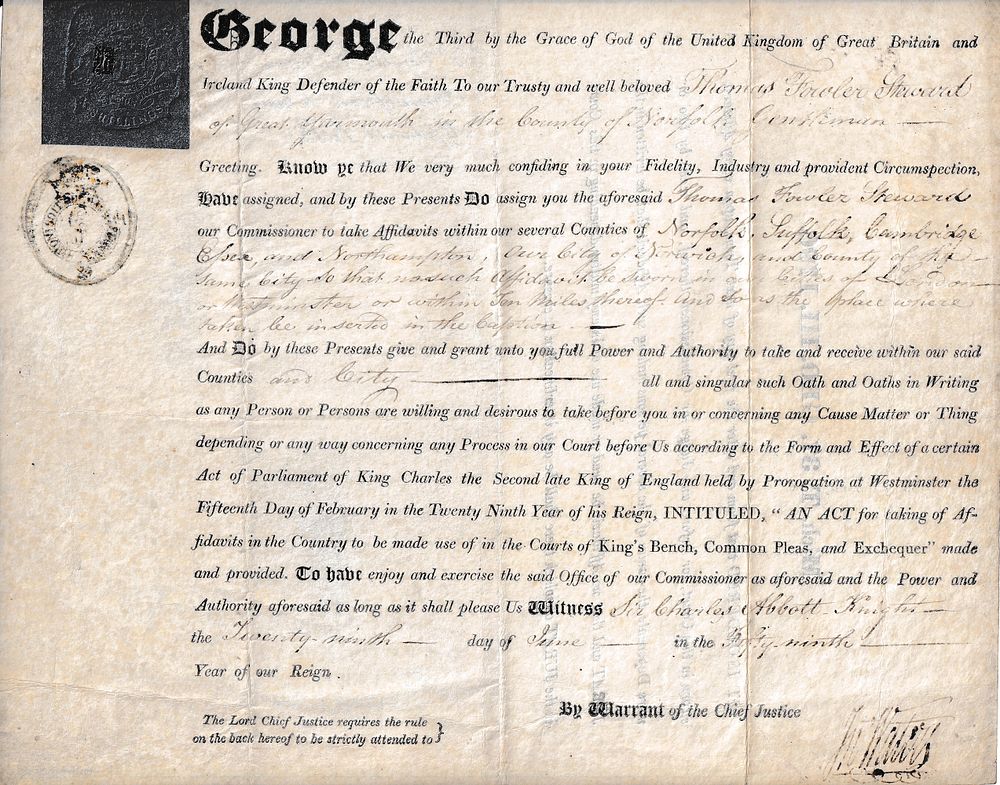 SHILLINGS
George the Third by the Grace of God of the United Kingdom of Great Britain and
Ireland King Defender of the Faith To our Trusty and well beloved Thomas Fowler Steward
of Great Yarmouth in the County of Norfolk Gentleman —
Greeting. Know ye that We very much confiding in your Fidelity, Industry and provident Circumspection,
Have assigned, and by these Presents Do assign you the aforesaid Thomas Fowler Steward
our Commissioner to take Affidavits within our several Counties of Norfolk, Suffolk, Cambridge
Essex, and Northampton, Our City of Norwich, and County of the
same City so that no such Affidavit be sworn in our Cities of London
or Westminster or within Ten Miles thereof. And so as the place where
taken be inserted in the Caption —
And Do by these Presents give and grant unto you full Power and Authority to take and receive within our said
Counties and City — all and singular such Oath and Oaths in Writing
as any Person or Persons are willing and desirous to take before you in or concerning any Cause Matter or Thing
depending or any way concerning any Process in our Court before Us according to the Form and Effect of a certain
Act of Parliament of King Charles the Second late King of England held by Prorogation at Westminster the
Fifteenth Day of February in the Twenty Ninth Year of his Reign, INTITULED, "AN ACT for taking of Af-
fidavits in the Country to be made use of in the Courts of King's Bench, Common Pleas, and Exchequer" made
and provided. To have enjoy and exercise the said Office of our Commissioner as aforesaid and the Power and
Authority aforesaid as long as it shall please Us Witness Sir Charles Abbott Knight —
the Twenty-ninth — day of June — in the Fifty-ninth —
Year of our Reign.
By Warrant of the Chief Justice
The Lord Chief Justice requires the rule
on the back hereof to be strictly attended to }